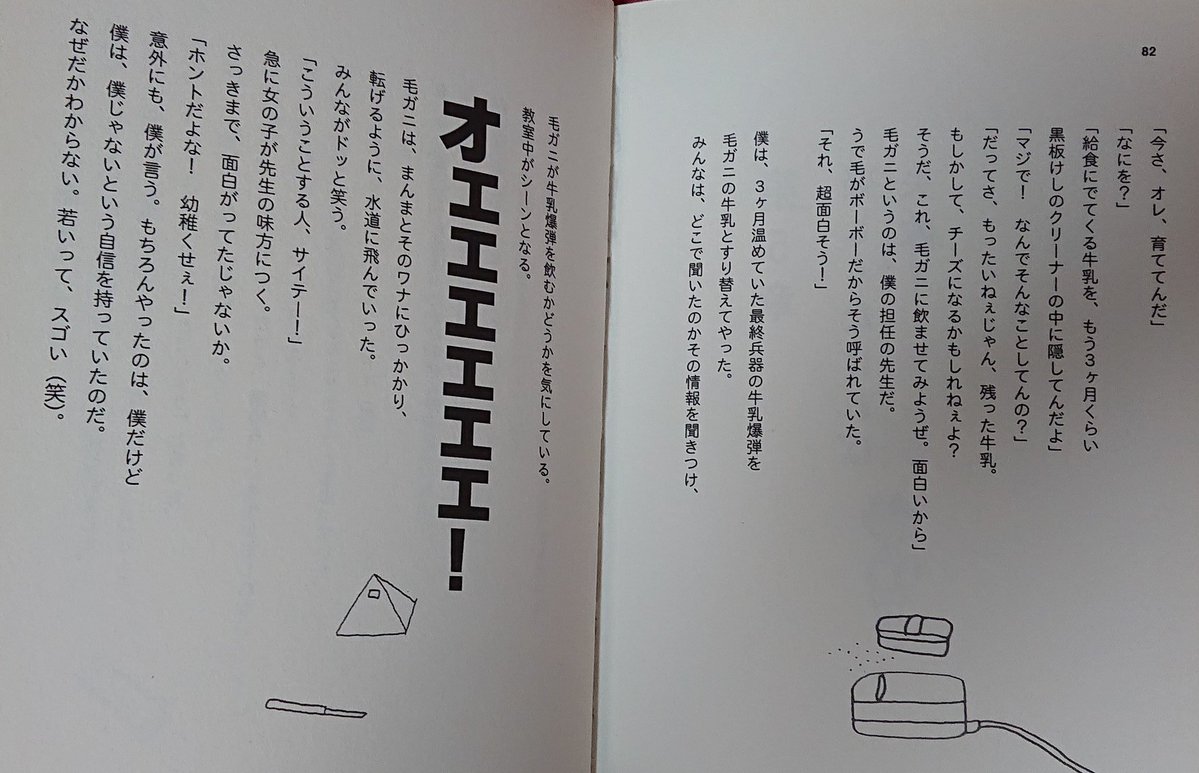 82
「今さ、オレ、育ててんだ」
「なにを?」
「給食にでてくる牛乳を、もう3ヶ月くらい
黒板けしのクリーナーの中に隠してんだよ」
「マジで!　なんでそんなことしてんの?」
「だってさ、もったいねぇじゃん、残った牛乳。
もしかして、チーズになるかもしれねぇよ?
そうだ、これ、毛ガニに飲ませてみようぜ。面白いから」
毛ガニというのは、僕の担任の先生だ。
うで毛がボーボーだからそう呼ばれていた。
「それ、超面白そう!」
僕は、3ヶ月温めていた最終兵器の牛乳爆弾を
毛ガニの牛乳とすり替えてやった。
みんなは、どこで聞いたのかその情報を聞きつけ、
毛ガニが牛乳爆弾を飲むかどうかを気にしている。
教室中がシーンとなる。
オエエエエエエエ!
毛ガニは、まんまとそのワナにひっかかり、
転げるように、水道に飛んでいった。
みんながドッと笑う。
「こういうことする人、サイテー!」
急に女の子が先生の味方につく。
さっきまで、面白がってたじゃないか。
「ホントだよな!　幼稚くせぇ!」
意外にも、僕が言う。もちろんやったのは、僕だけど
僕は、僕じゃないという自信を持っていたのだ。
なぜだかわからない。若いって、スゴい(笑)。